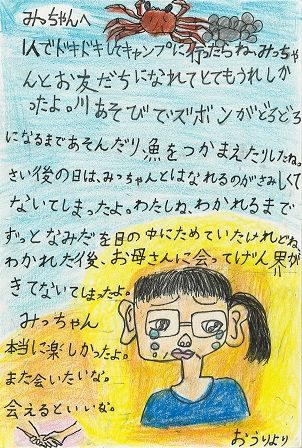 みっちゃんへ
1人でドキドキしてキャンプに行ったらね、みっちゃ
んとお友だちになれてとてもうれしか
ったよ。川あそびでズボンがどろどろ
になるまであそんだり、魚をつかまえたりしたね。
さい後の日は、みっちゃんとはなれるのがさみしくて
ないてしまったよ。わたしね、わかれるまで
ずっとなみだを目の中にためていたけれどね、
わかれた後、お母さんに会ってげん界が
きてないてしまったよ。
みっちゃん
本当に楽しかったよ。
また会いたいな。
会えるといいな。
おうりより